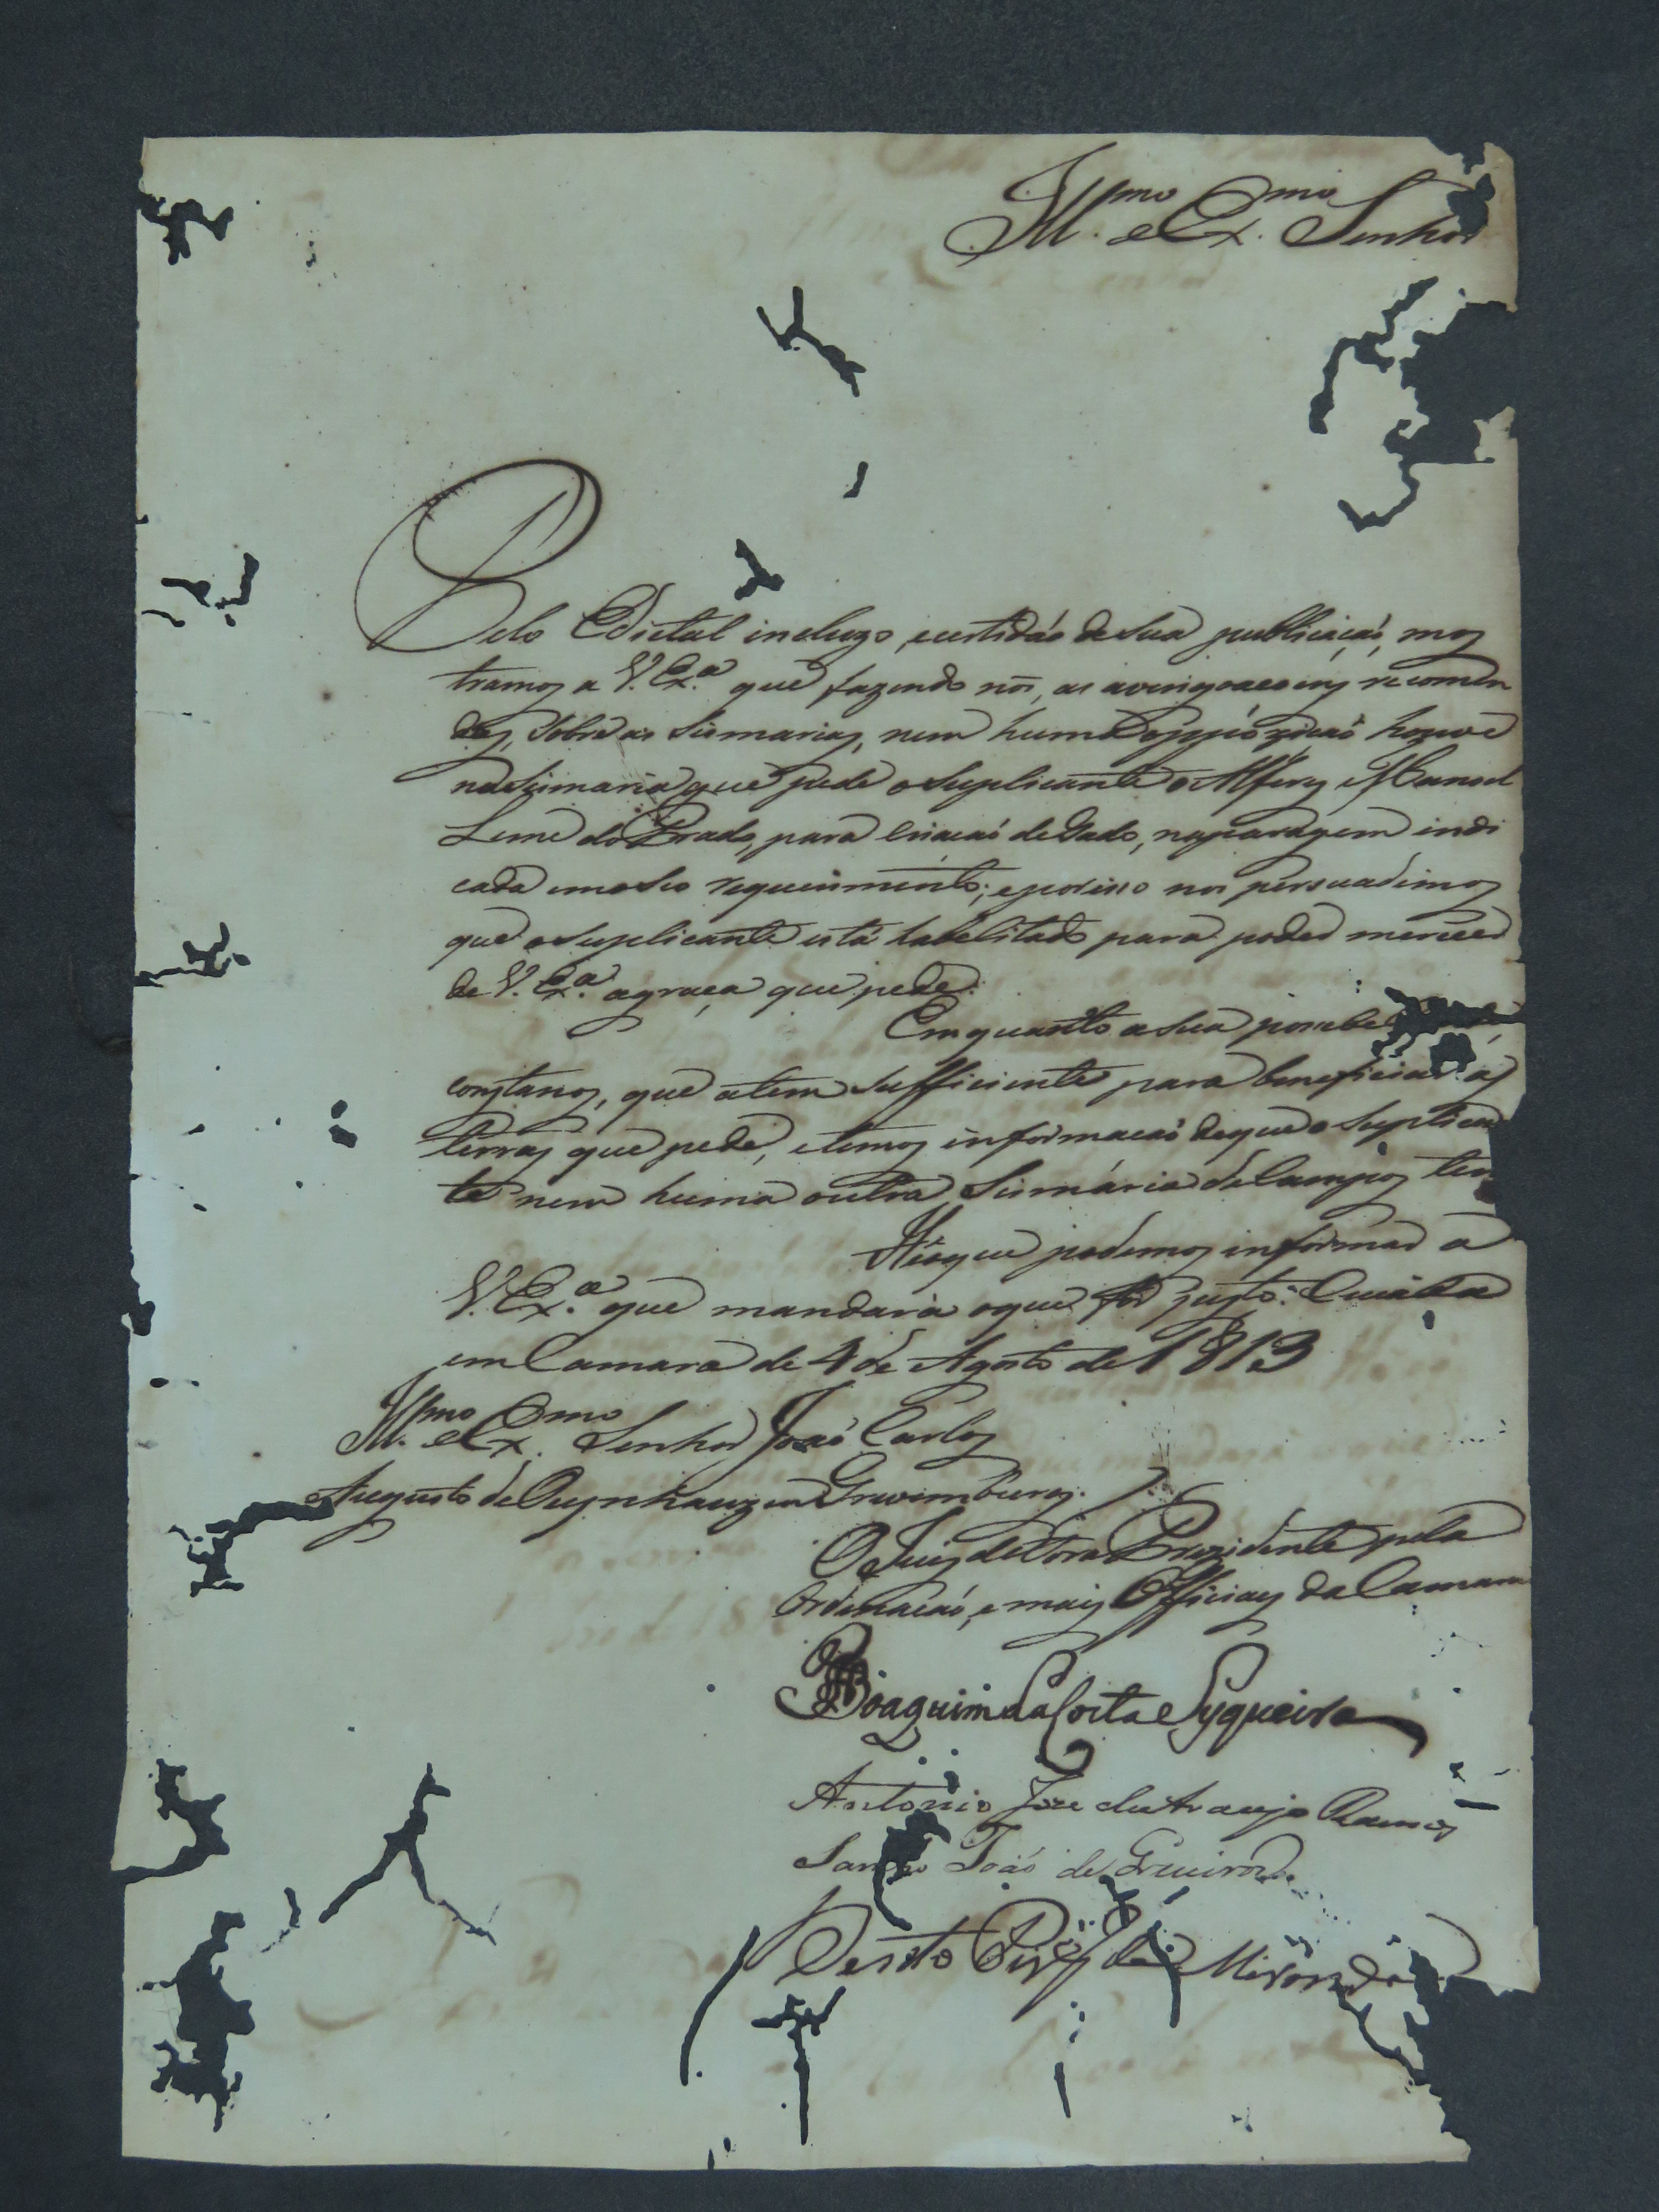 Ill.mo e Ex.mo Senhor
Pelo Edictal incluzo, e certidaõ de sua publicaçaõ, mos
tramos a V. Ex.a que fazendo nós, as averiguacoens recomen
das, sobre as Sismarias, nem huma oppózicaõ houve
na Sismaria que pede o Suplicante o Alferes Manoel
Leme do Prado, para criacaó de Gado, na paragem indi
cada em o seo requerimento; e por isso nos persuadimos
que o Suplicante está habelitado para poder merecer
de V. Ex.a a graça que pede.
Em quanto a sua
constanos, que a tem sufficiente para beneficiar as
terras que pede, e temos informacaó de que o Suplican
te nem huma outra Sismária de Campos tem
Hé o que podemos informar a
V. Ex.a que mandará o que for justo. Cuiabá
em Camara de 4 de Agosto de 1813
Ill.mo e Ex.mo Senhor Joaó Carlos
Augusto de Oeynhauzen Grevemburg.
O Juiz de Fora Prezidente pela
Ordenacaó, e mais Officiaes da Camara
Joaquim da Costa Syqueira
Antonio Joze de Araujo Ramos
João de
Bento Pires de Miranda